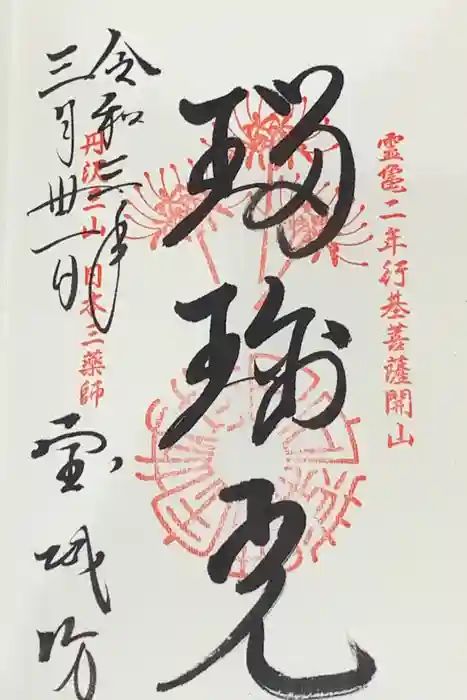 霊亀二年行基菩薩開山
瑠璃光
丹沢山 日本三薬師
令和三年
三月卅一日
宝城坊